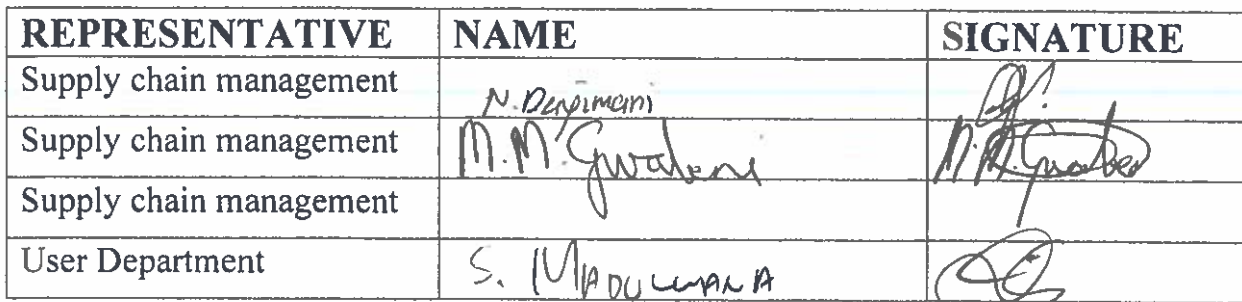 REPRESENTATIVE NAME SIGNATURE
Supply chain management N.
Supply chain management M.M. Gwabeni
Supply chain management
User Department S.